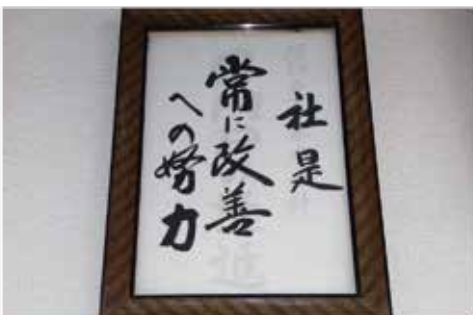 社是
常に改善
への努力